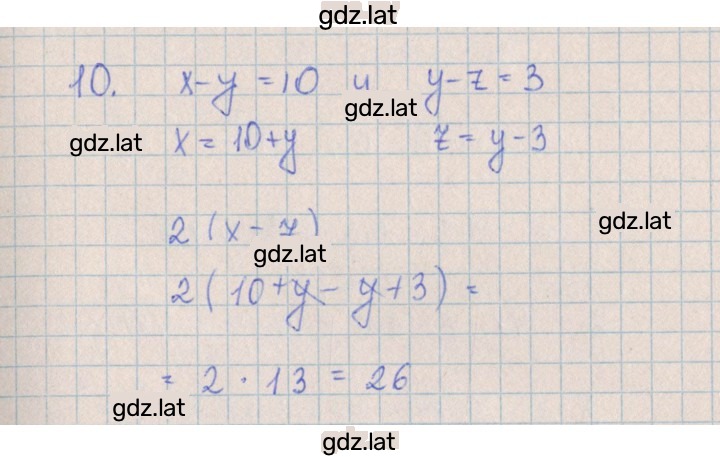 gdz.lat
10. x-y = 10 и y-z = 3
gdz.lat
gdz.lat x = 10+y z = y-3
gdz.lat
2 (x - z)
gdz.lat
2 ( 10+y - y+3) =
= 2 · 13 = 26
gdz.lat
gdz.lat